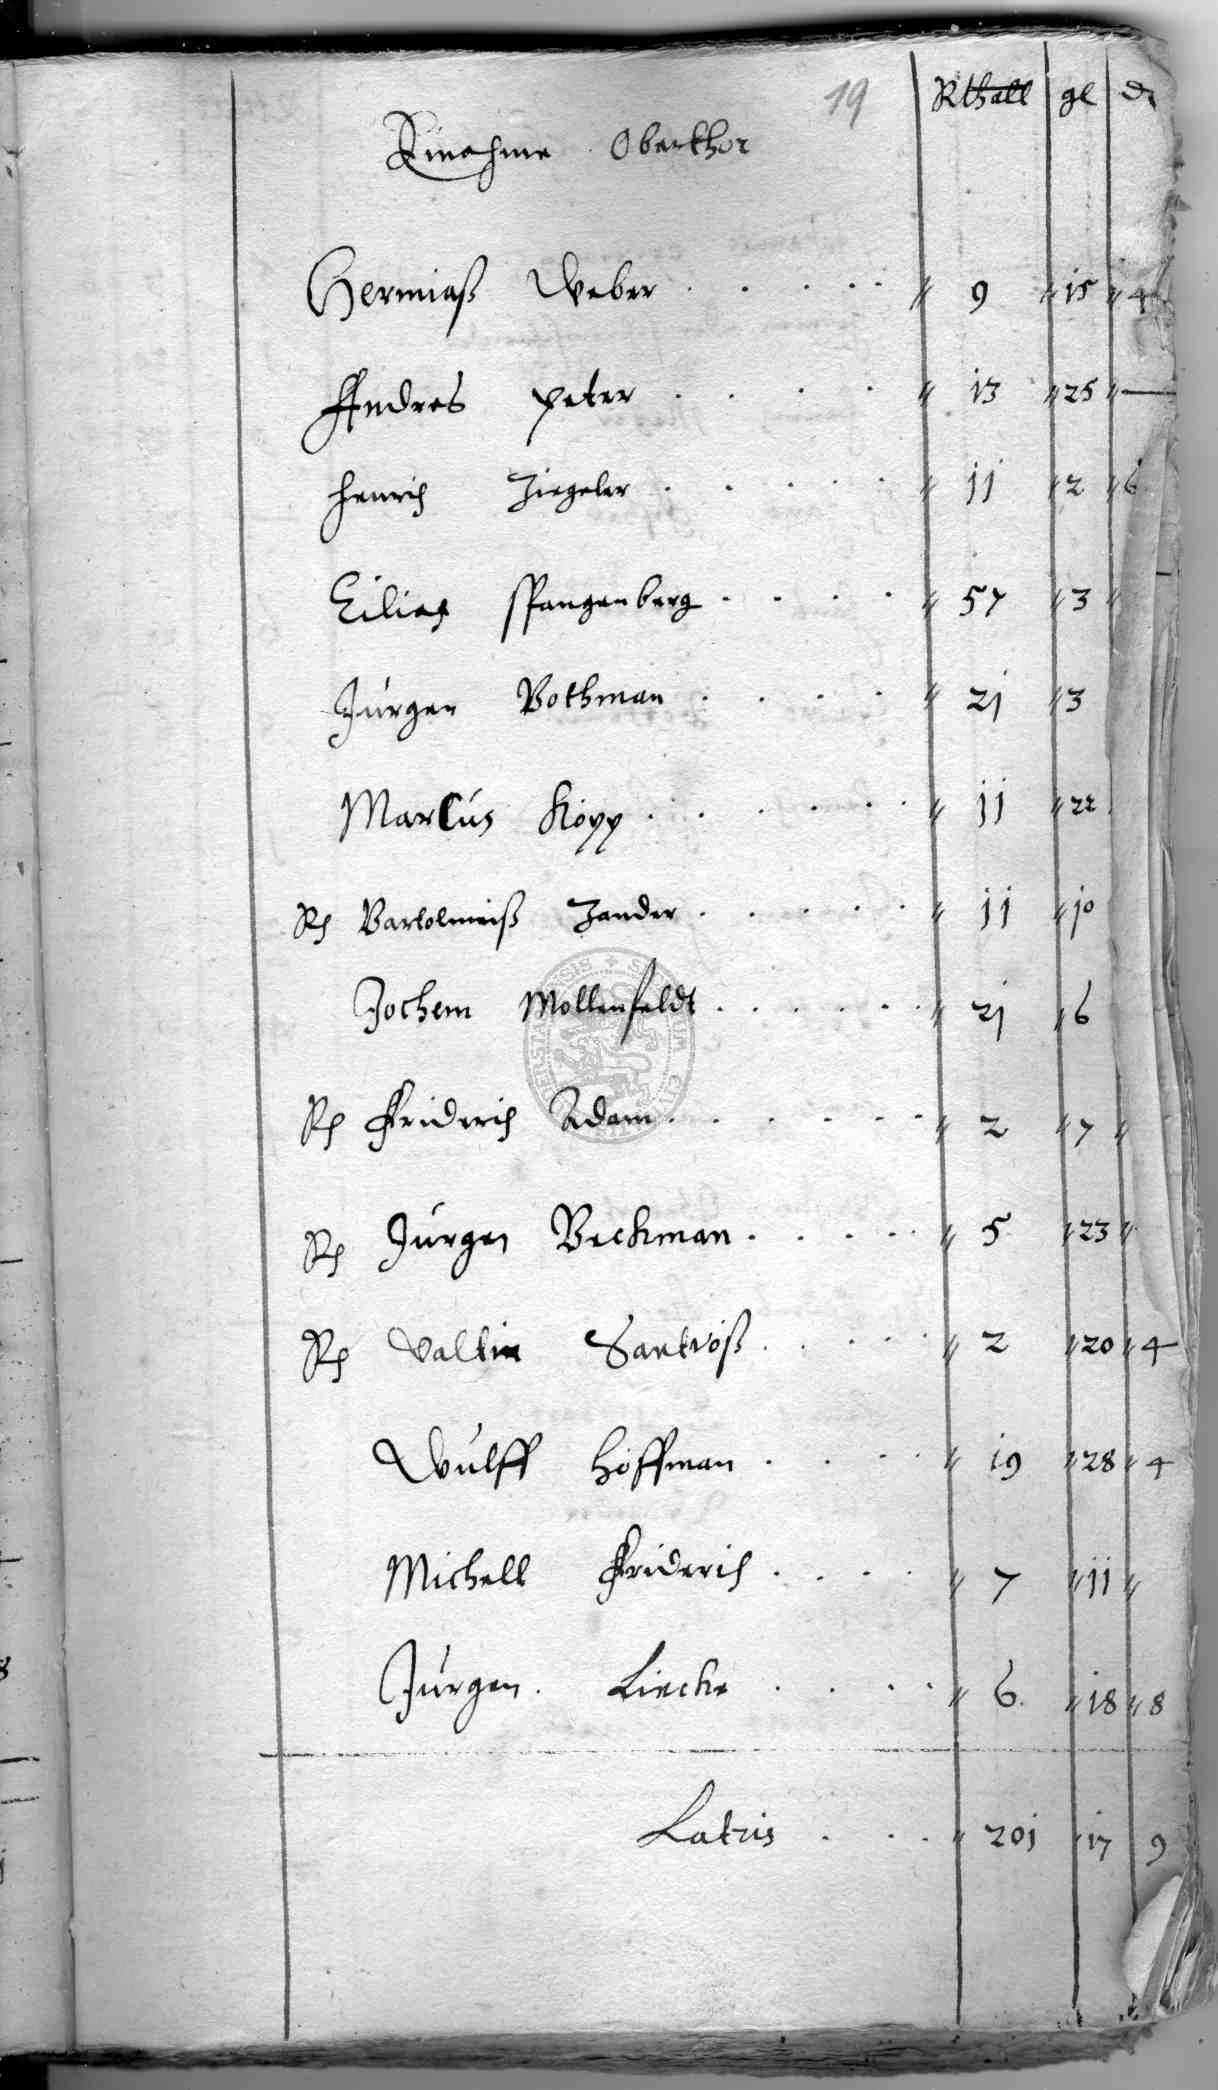 19 Rthall gl d
Einahme Oberthor
Hermiaß Weber . . . . . " 9 " 15 " 4
Andres Peter . . . . " 13 " 25 " —
Henrich Ziegeler . . . . . " 11 " 2 " 6
Eilias Spangenberg . . . . " 57 " 3 "
Jürgen Bothman . . . . " 21 " 3
Marcus Kopp . . . . . " 11 " 22
Bartolmeiß Zander . . . . . " 11 " 10
Jochem Mollenfeldt . . . . . . " 21 " 6
Friderich Adam . . . . . " 2 " 7 "
Jürgen Beckman . . . . . " 5 " 23 "
Valtin Santroß . . . . " 2 " 20 " 4
Wulff Hoffman . . . . " 19 " 28 " 4
Michell Friderich . . . . " 7 " 11 "
Jürgen Liecke . . . . " 6 " 18 " 8
Latris . . . " 201 " 17 9